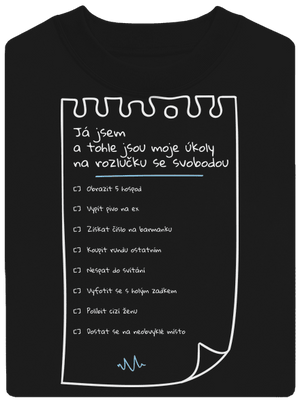 Já jsem
a tohle jsou moje úkoly
na rozlučku se svobodou
Obrazit 5 hospod
Vypít pivo na ex
Získat číslo na barmanku
Koupit rundu ostatním
Nespat do svítání
Vyfotit se s holým zadkem
Políbit cizí ženu
Dostat se na neobvyklé místo